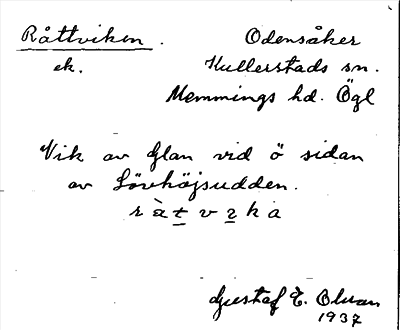 Råttviken. Odensåker
ek. Kullerstads sn.
Memmings hd. Ögl
Vik av Glan vid ö sidan
av Lövhöjsudden.
Gustaf E. Olson
1937